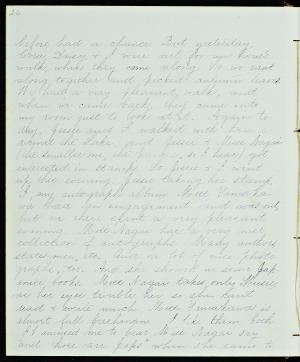 26
before had a chance. But yesterday
Cora, Dining & I were out for an hour's
walk when they came along. So we went
along together and picked autumn leaves.
We had a very pleasant walk, and
when we came back, they came into
my room just to look at it. Again to
day, Jessie and I walked with them
round the lake, and Jessie & Miss Nagai
(the smaller one, the funnier, so I hear) got
interested in stamps. So Jessie & I went
up this evening, Jessie taking her stamps,
I, my autograph album. Miss Yamakawa
had an engagement and was out,
but we there spent a very pleasant
evening. Miss Nagai has a very nice
collection of autographs. Many authors,
statesmen, etc. And a lot of nice photo
graphs, too. And she showed us some Jap
anese books. Miss Nagai takes only Music,
as her eyes trouble her so she can't
read & write much. Miss Yamakawa is
almost full freshman. I like them both.
It amused me to hear Miss Nagai say
"and those are paps" when she came to